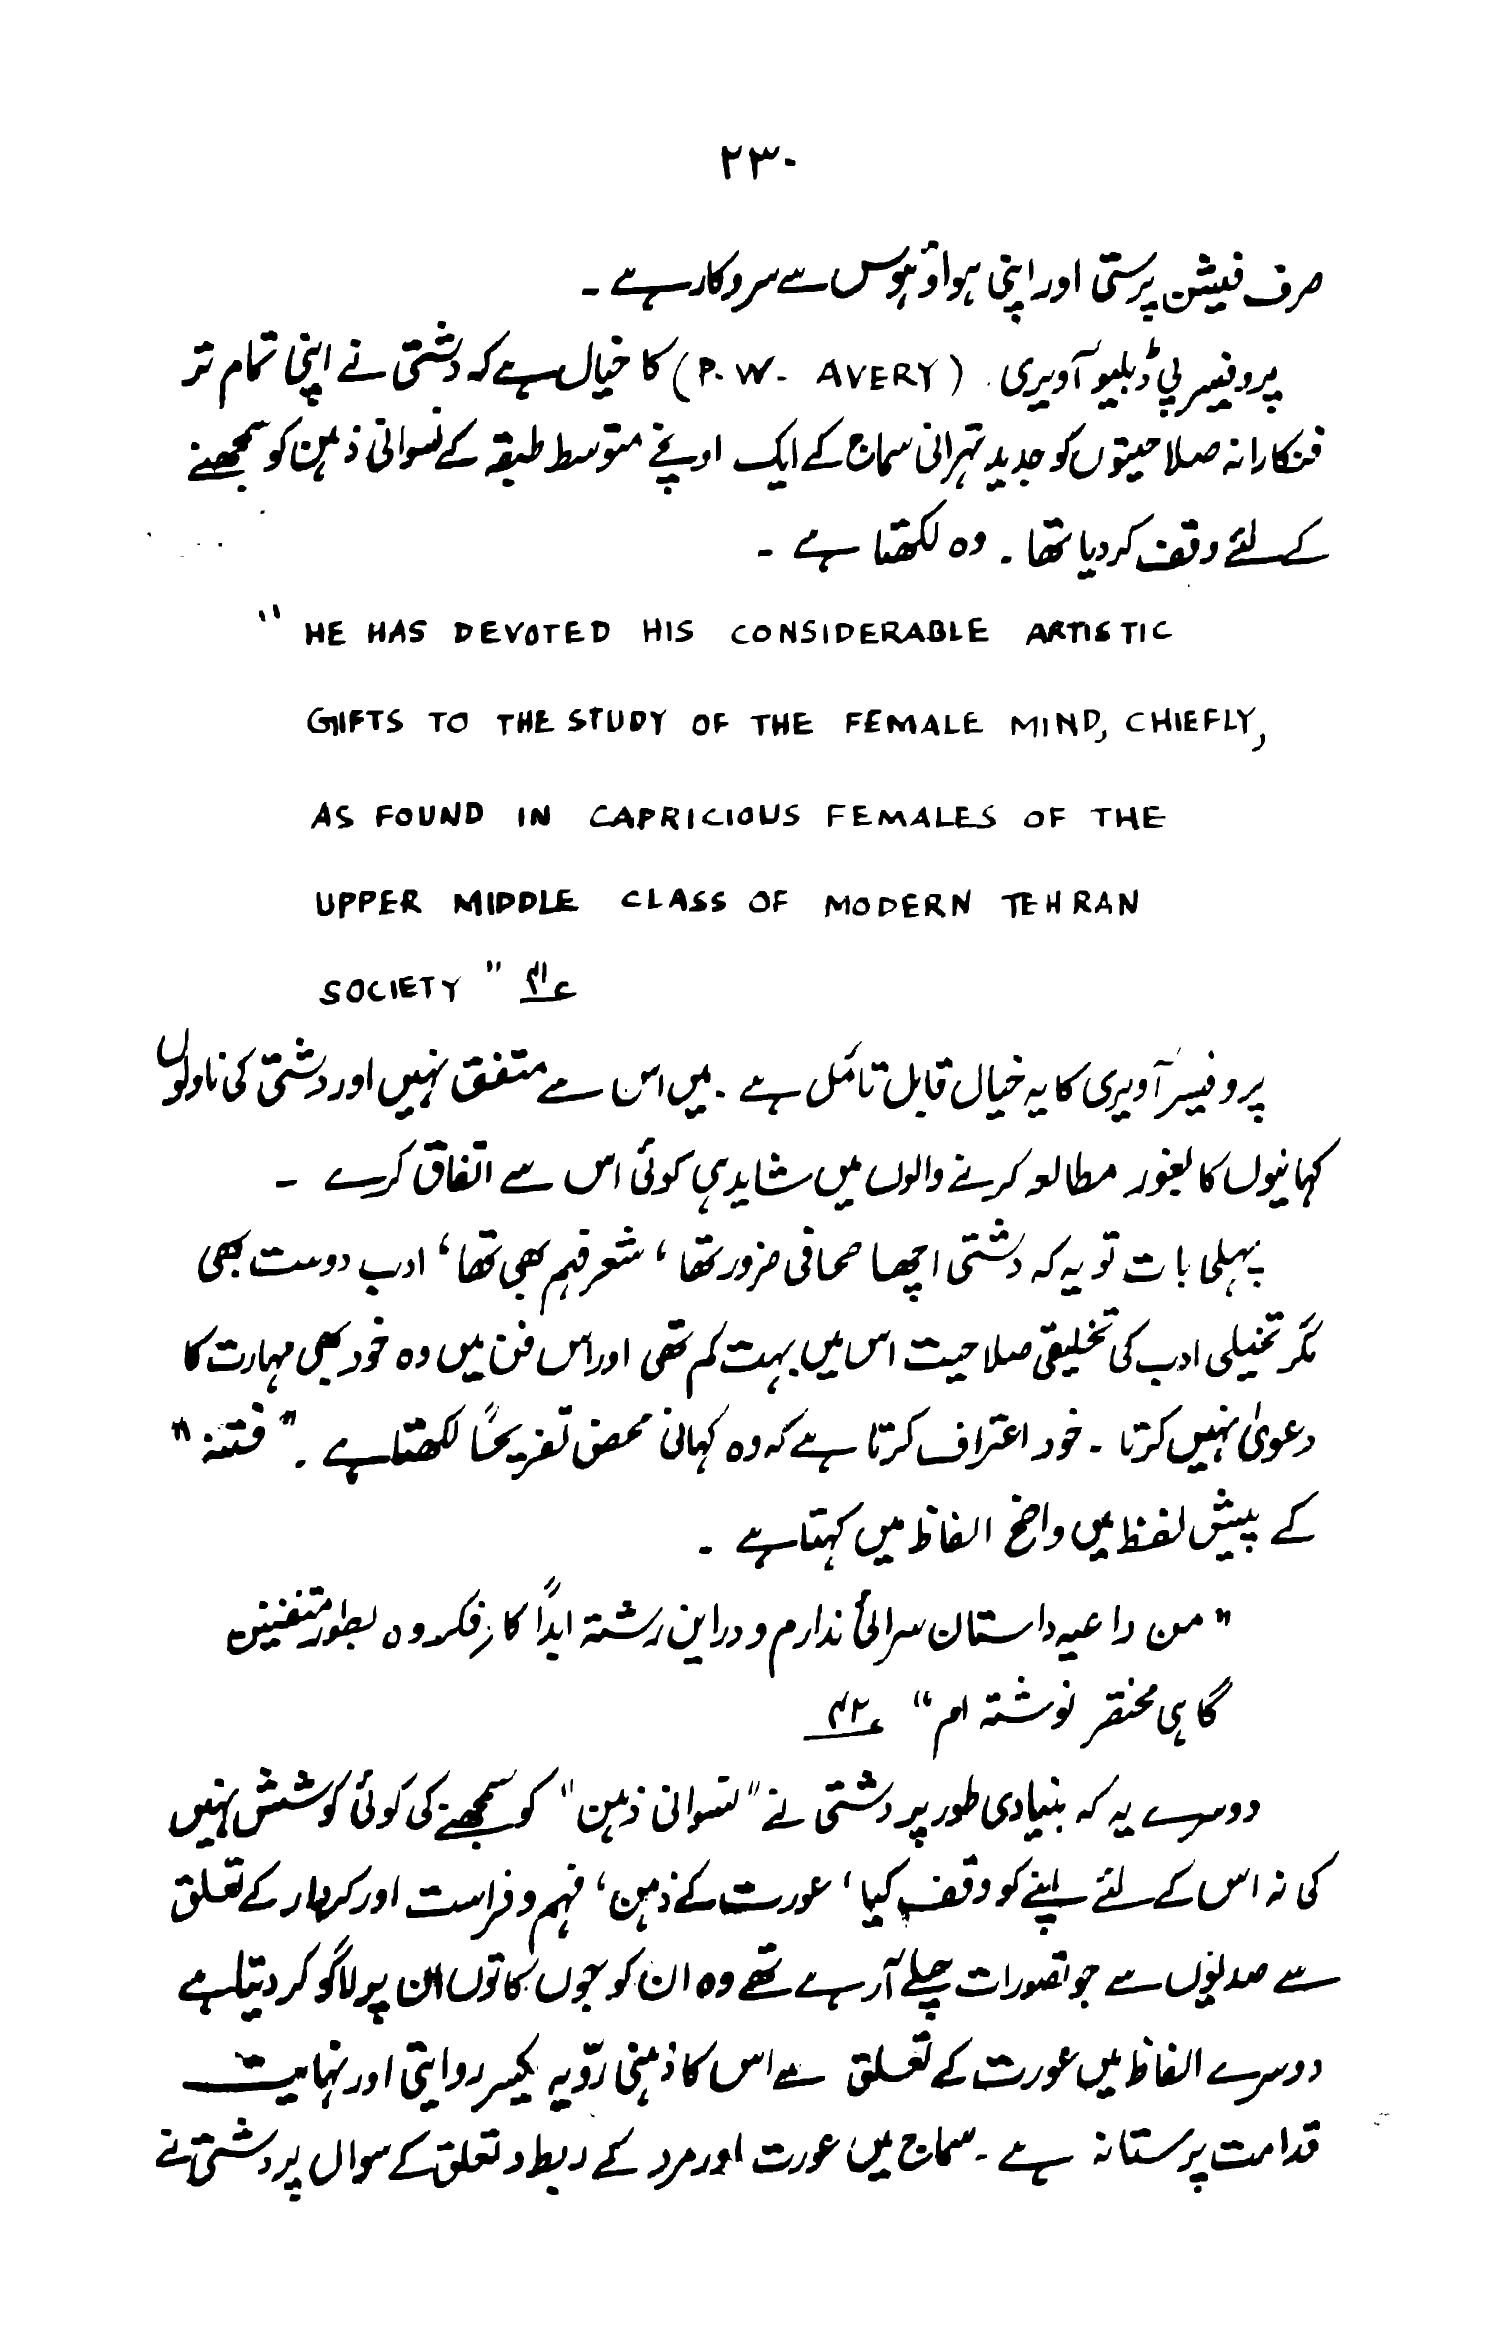 ۲۳۰
صرف فیشن پرستی اور اپنی ہوا و ہوس سے سروکار ہے ۔
پروفیسر پی ڈبلیو آویری (P. W. AVERY) کا خیال ہے کہ دشتی نے اپنی تمام تر
فنکارانہ صلاحیتوں کو جدید تہرانی سماج کے ایک اونچے متوسط طبقہ کے نسوانی ذہن کو سمجھنے
کے لئے وقف کر دیا تھا ۔ وہ لکھتا ہے ۔
" HE HAS DEVOTED HIS CONSIDERABLE ARTISTIC
GIFTS TO THE STUDY OF THE FEMALE MIND, CHIEFLY,
AS FOUND IN CAPRICIOUS FEMALES OF THE
UPPER MIDDLE CLASS OF MODERN TEHRAN
SOCIETY " ؏۴۱
پروفیسر آویری کا یہ خیال قابل تامّل ہے ۔ میں اس سے متفق نہیں اور دشتی کی ناولوں
کہانیوں کا بغور مطالعہ کرنے والوں میں شاید ہی کوئی اس سے اتفاق کرے ۔
پہلی بات تو یہ کہ دشتی اچھا صحافی ضرور تھا ، شعر فہم بھی تھا ، ادب دوست بھی
مگر تخیلی ادب کی تخلیقی صلاحیت اس میں بہت کم تھی اور اس فن میں وہ خود بھی مہارت کا
دعویٰ نہیں کرتا ۔ خود اعتراف کرتا ہے کہ وہ کہانی محض تفریحاً لکھتا ہے ۔ " فتنہ "
کے پیش لفظ میں واضح الفاظ میں کہتا ہے ۔
" من داعیہ داستان سرائی ندارم و دراین رشتہ ابداً کار نکردہ بطور متفنین
گاہی مختصر نوشتہ ام " ؏۴۲
دوسرے یہ کہ بنیادی طور پر دشتی نے " نسوانی ذہن " کو سمجھنے کی کوئی کوشش نہیں
کی نہ اس کے لئے اپنے کو وقف کیا ، عورت کے ذہن ، فہم و فراست اور کردار کے تعلق
سے صدیوں سے جو تصورات چلے آ رہے تھے وہ ان کو جوں کا توں ان پر لاگو کر دیتا ہے
دوسرے الفاظ میں عورت کے تعلق سے اس کا ذہنی رویّہ یکسر روایتی اور نہایت
قدامت پرستانہ ہے ۔ سماج میں عورت اور مرد کے ربط و تعلق کے سوال پر دشتی نے